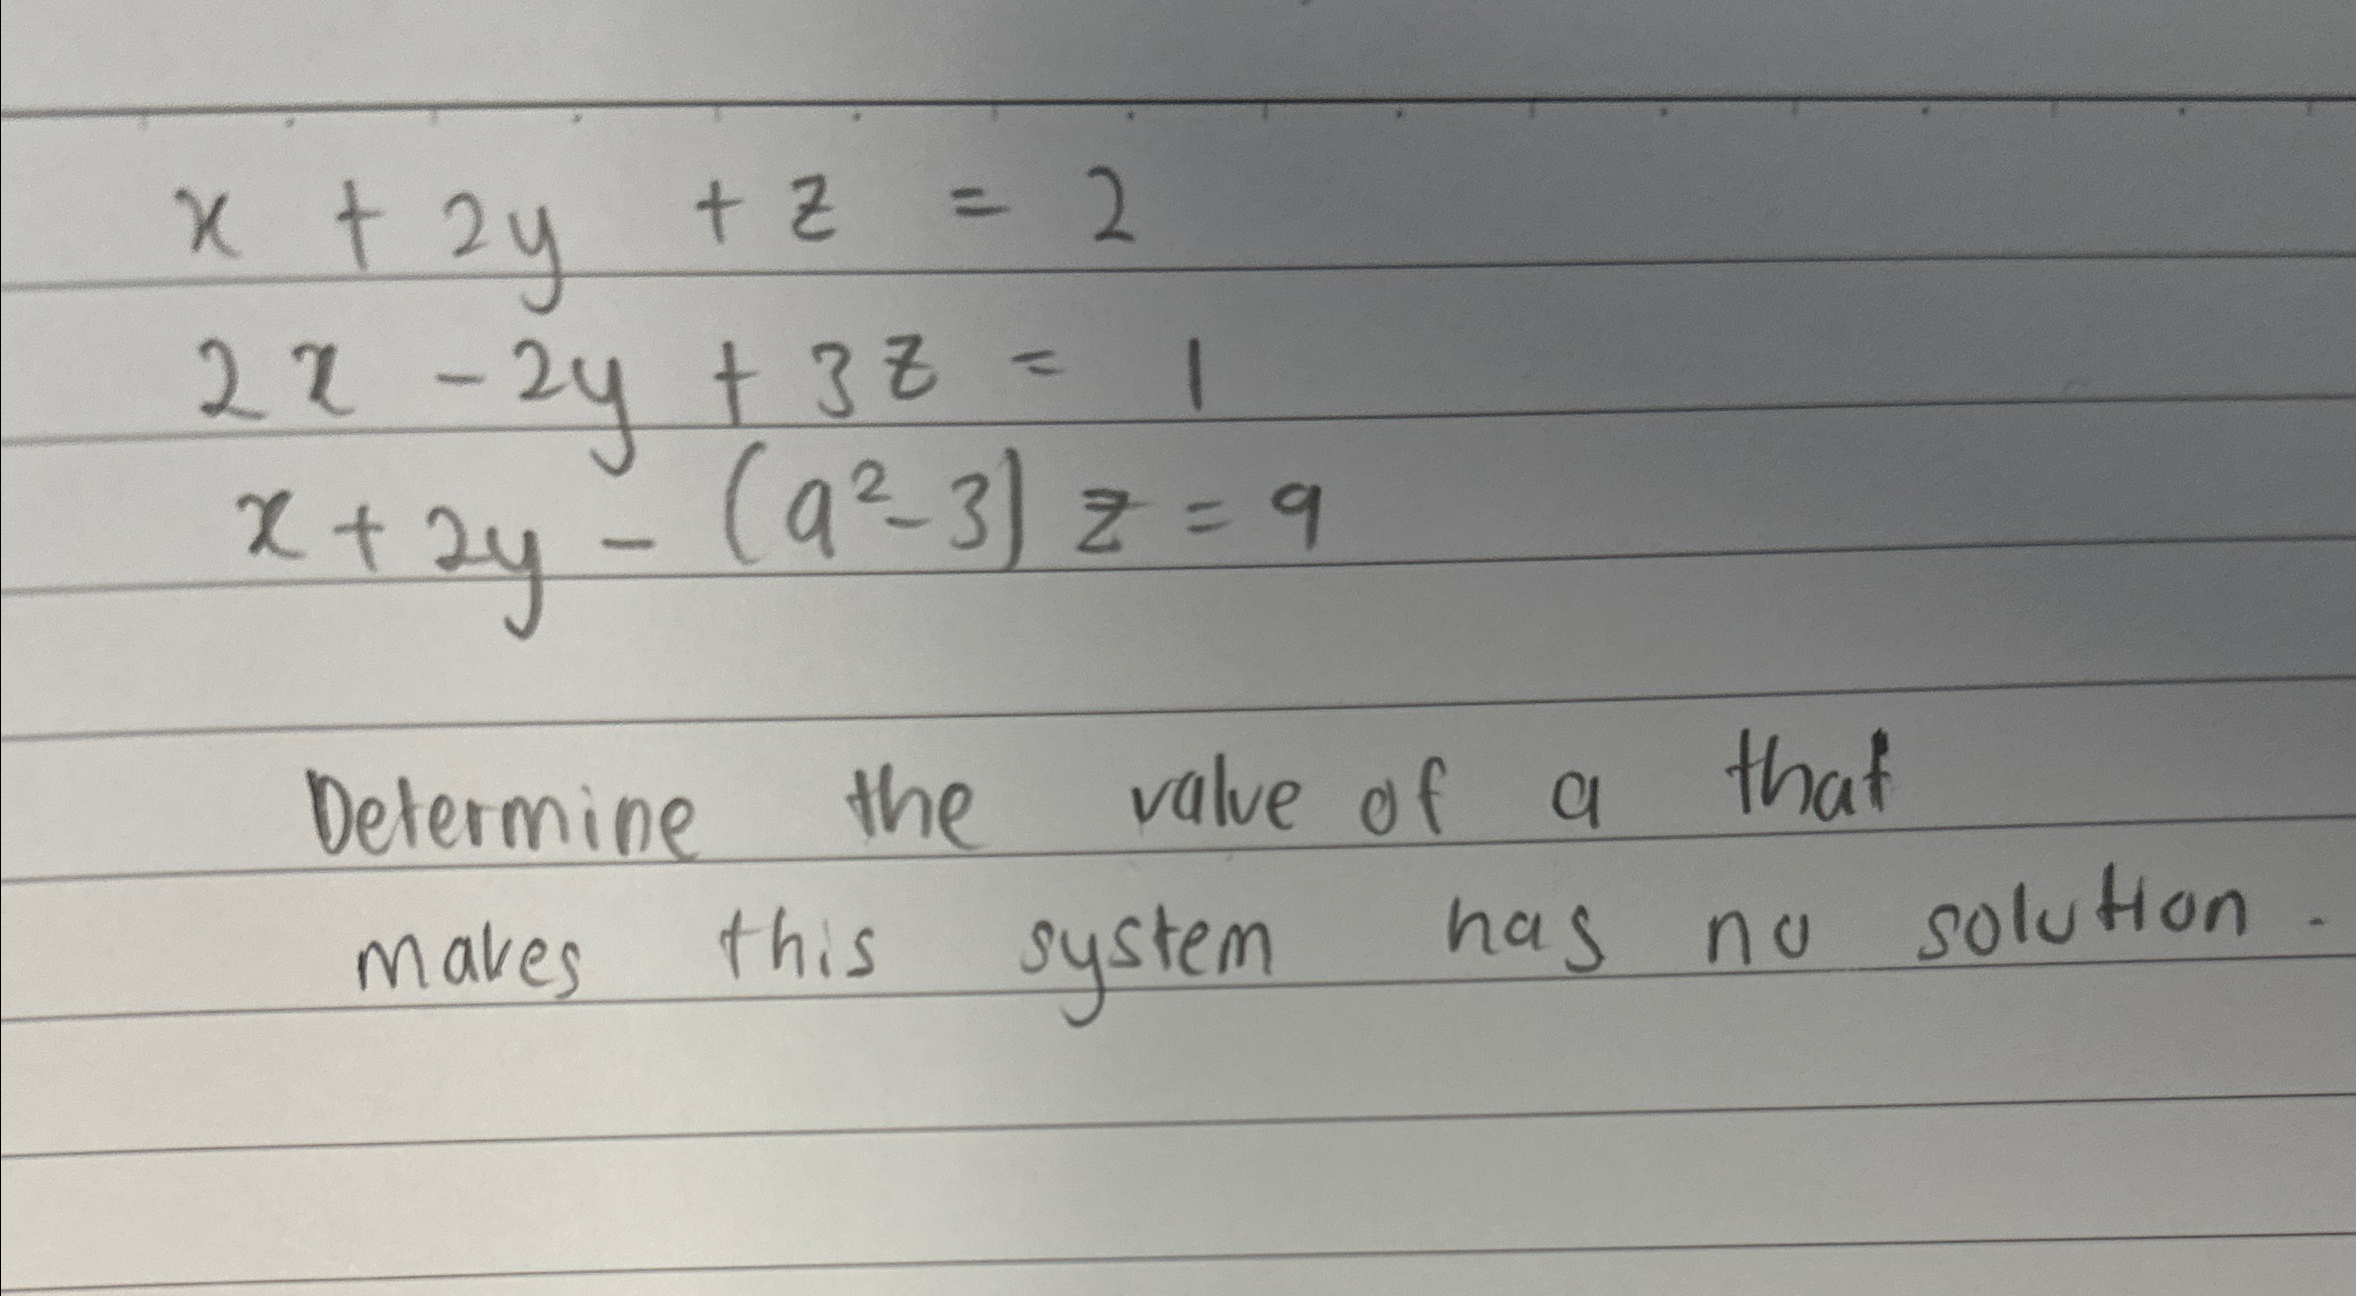 x + 2y + z = 2
2x - 2y + 3z = 1
x + 2y - (a²-3) z = a
Determine the value of a that
makes this system has no solution.